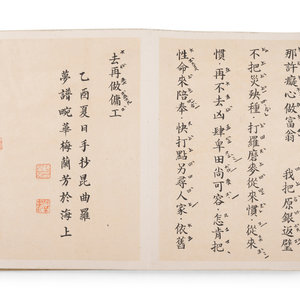 那許癡心做富翁 我把原銀返璧
不把災殃種打羅磨麥從來慣從來
慣再不去凶肆卑田尚可容怎肯把
性命來陪奉快打點另尋人家依舊
去再做傭工
乙酉夏日手抄昆曲羅
夢譜畹華梅蘭芳於海上